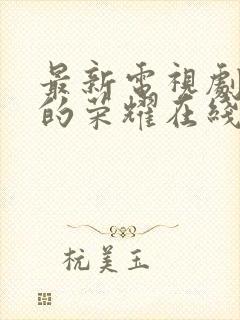 最新電視劇
的荣耀在线
杭美玉